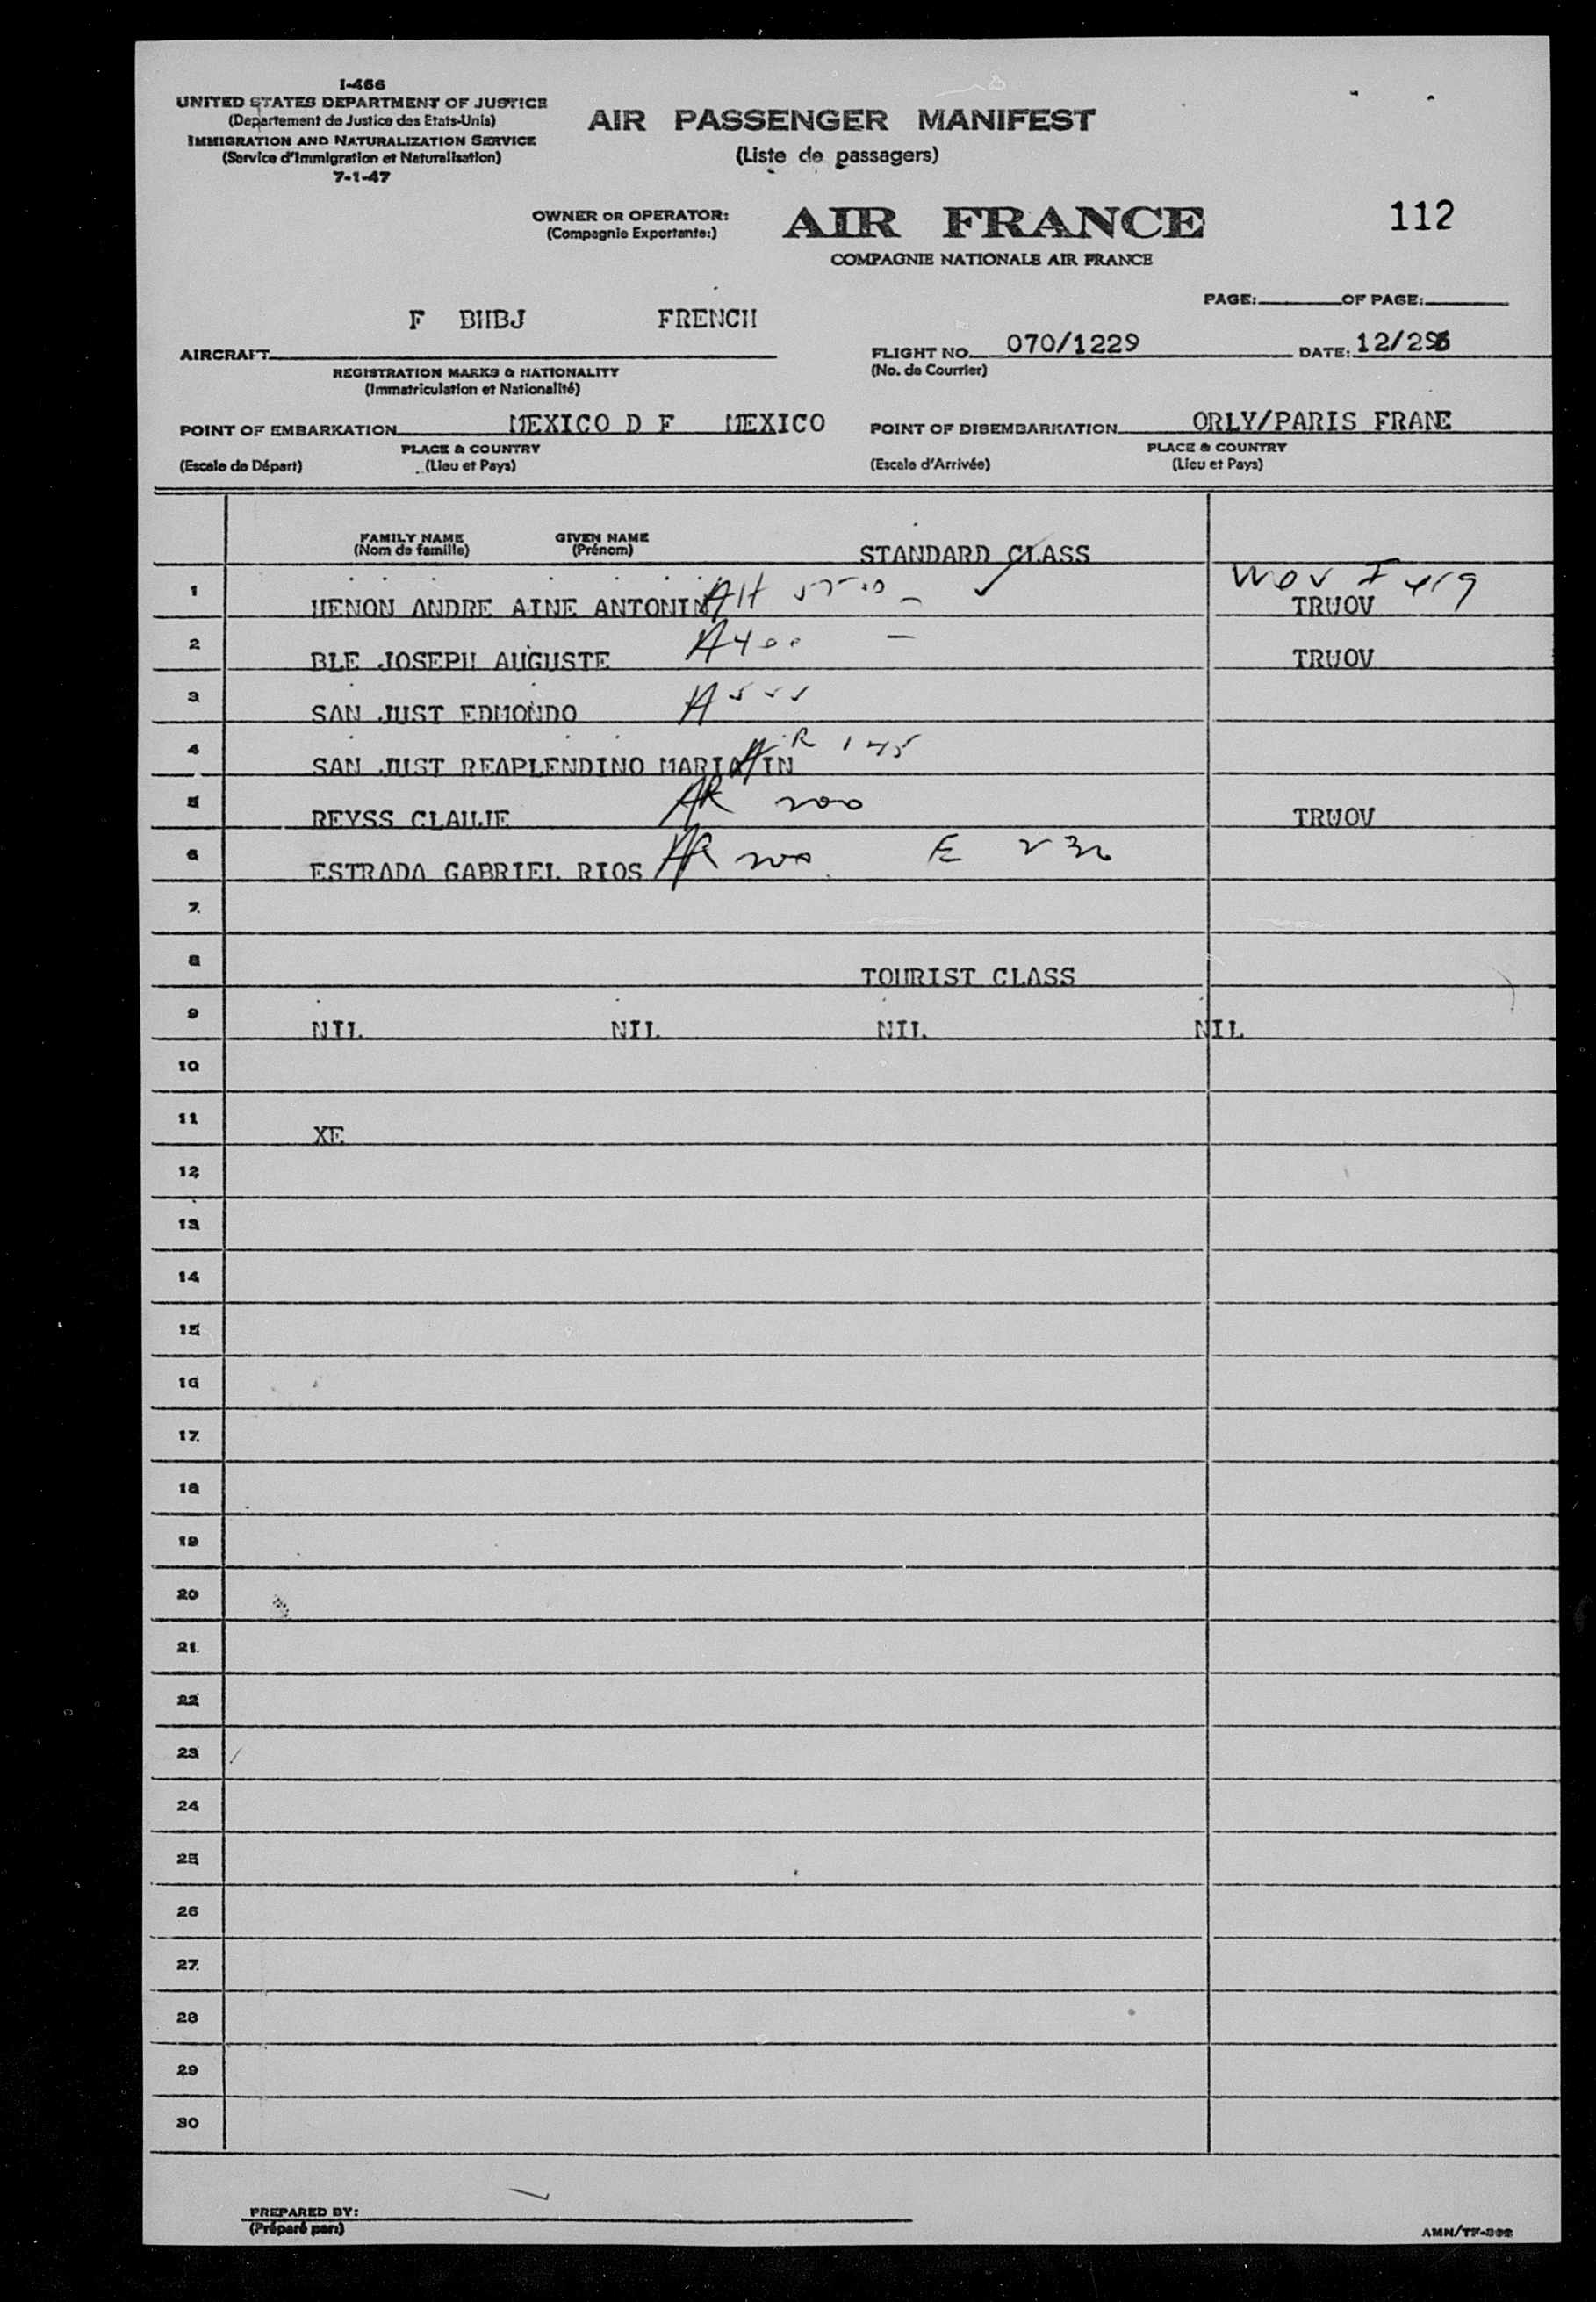 I-466
UNITED STATES DEPARTMENT OF JUSTICE
(Departement de Justice des Etats-Unis)
IMMIGRATION AND NATURALIZATION SERVICE
(Service d'Immigration et Naturalisation)
7-1-47
AIR PASSENGER MANIFEST
(Liste de passagers)
OWNER OR OPERATOR:
(Compagnie Exportante:)
AIR FRANCE
COMPAGNIE NATIONALE AIR FRANCE
112
PAGE: OF PAGE:
F BHBJ FRENCH
AIRCRAFT
REGISTRATION MARKS & NATIONALITY
(Immatriculation et Nationalité)
FLIGHT NO. 070/1229 DATE: 12/29
(No. de Courrier)
POINT OF EMBARKATION MEXICO D F MEXICO
PLACE & COUNTRY
(Escale de Départ) (Lieu et Pays)
POINT OF DISEMBARKATION ORLY/PARIS FRANE
PLACE & COUNTRY
(Escale d'Arrivée) (Lieu et Pays)
FAMILY NAME GIVEN NAME
(Nom de famille) (Prénom) STANDARD CLASS
1 HENON ANDRE AINE ANTONIN TRWOV
2 BLE JOSEPH AUGUSTE A400 TRWOV
3 SAN JUST EDMONDO
4 SAN JUST REAPLENDINO
5 REYSS CLAUJE AR 200 TRWOV
6 ESTRADA GABRIEL RIOS AR 200 E
7
8 TOURIST CLASS
9 NIL NIL NIL NIL
10
11 XE
12
13
14
15
16
17
18
19
20
21
22
23
24
25
26
27
28
29
30
PREPARED BY:
(Préparé par:)